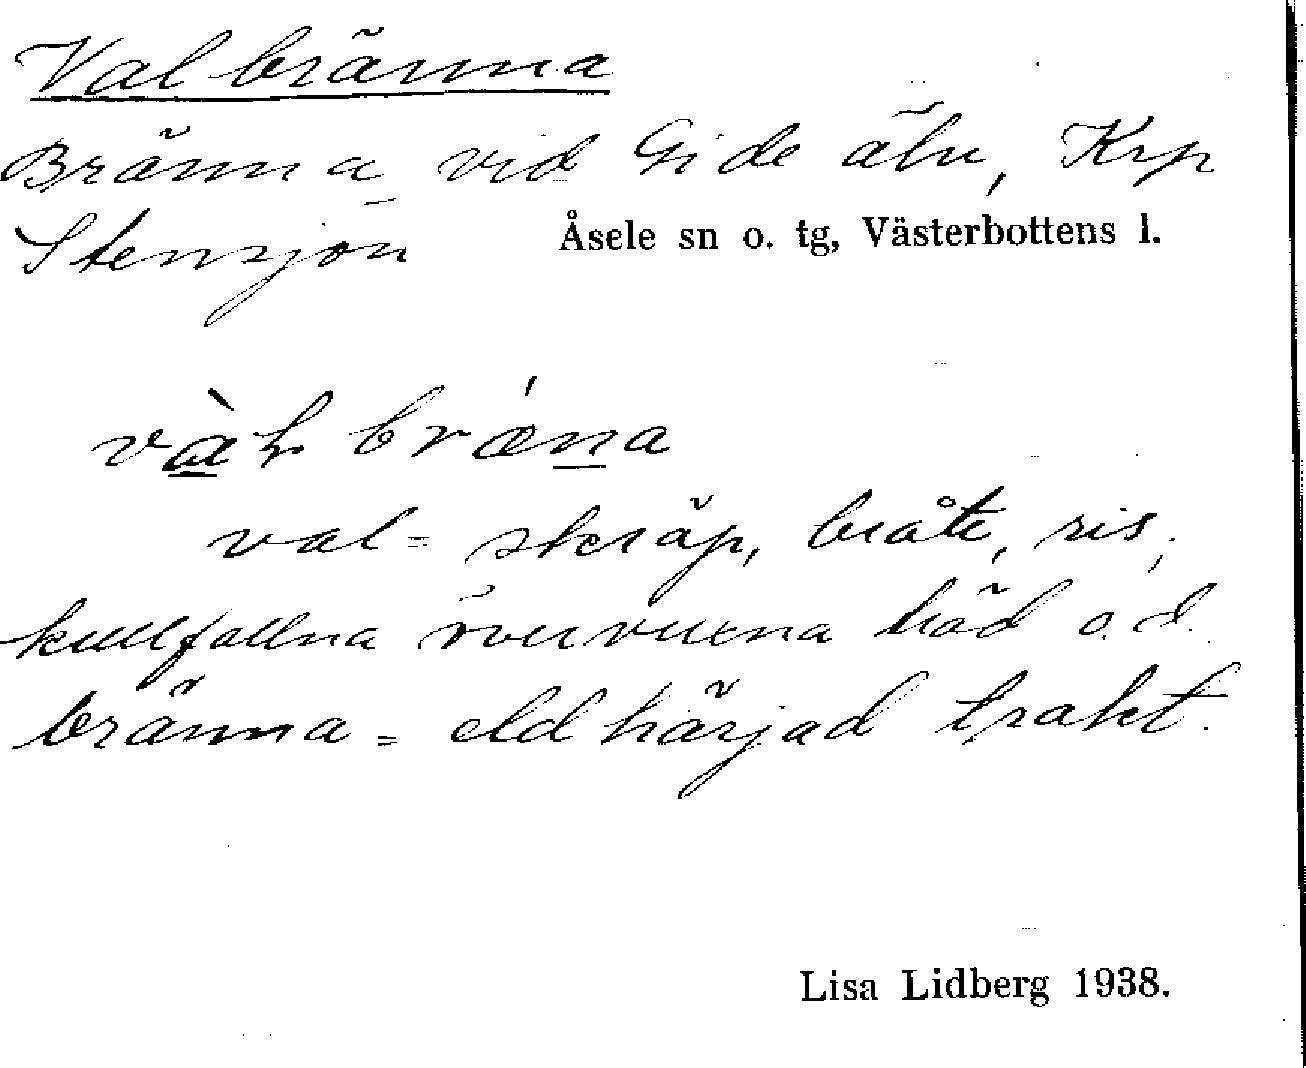 Valbränna
Bränna vid Gide älv, Krp
Stensjön
Åsele sn o. tg, Västerbottens l.
val = skräp, bråte, ris,
kullfallna övervuxna träd o. d.
bränna = eldhärjad trakt.
Lisa Lidberg 1938.